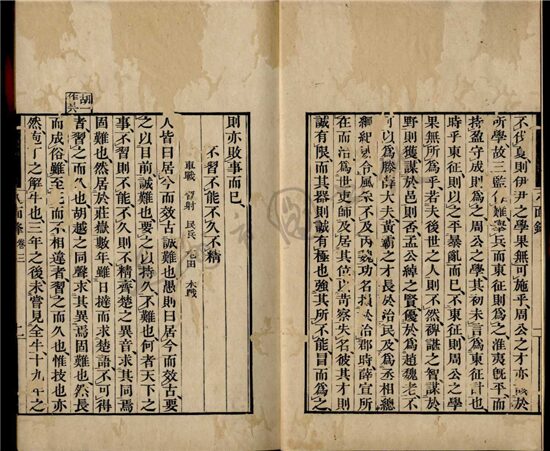 不伐夏則伊尹之學果無可施乎周公之才
所學故三監化離舉兵而東征則為之淮夷旣平而
持盈守成則為之周公之學其初未言為東征計也
時乎東征則以之平暴亂而已不東征則周公之學
果無所為乎若夫後世之人則不然裨諶之智謀於
野則獲謀於邑則否孟公綽之賢優於為趙魏老不
可以為滕薛大夫黃霸之才長於治民及為丞相總
綱紀號令風采不及丙魏功名損於治郡時薛宣所
在而治為世吏師及居其位以苛察失名彼其才則
誠有限而其器則誠有極也強其所不能冒而為之
則亦敗事而已
不習不能不久不精
車戰 習射 民兵 屯田 水戰
人皆曰居今而效古誠難也愚則曰居今而效古要
之以目前誠難也要之以持久不難也何者天下之
事不習則不能不久則不精齊楚之異音求其同焉
固難也然居於莊嶽數年雖日撻而求楚語不可得
者習之而久也胡越之同聲求其異焉固難也然長
而成俗雖至死而不相違者習之而久也惟技也亦
然庖丁之解牛也三年之後未嘗見全牛十九年之
胡一作共
八面鋒 卷三